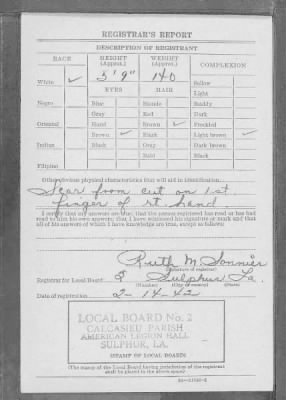 REGISTRAR'S REPORT
DESCRIPTION OF REGISTRANT
RACE HEIGHT (Approx.) WEIGHT (Approx.) COMPLEXION
5' 9" 140
White ✓ Sallow
EYES HAIR Light
Negro Blue Blonde Ruddy
Gray Red Dark
Oriental Hazel Brown ✓ Freckled
Brown ✓ Black Light brown ✓
Indian Black Gray Dark brown
Bald Black
Filipino
Other obvious physical characteristics that will aid in identification
Scar from cut on 1st
finger of rt. hand
I certify that my answers are true; that the person registered has read or has had
read to him his own answers; that I have witnessed his signature or mark and that
all of his answers of which I have knowledge are true, except as follows:
Ruth M. Sonnier
(Signature of registrar)
Registrar for Local Board 2 Sulphur La.
(Number) (City or county) (State)
Date of registration 2-14-42
LOCAL BOARD No. 2
CALCASIEU PARISH
AMERICAN LEGION HALL
SULPHUR, LA.
(STAMP OF LOCAL BOARD)
(The stamp of the Local Board having jurisdiction of the registrant
shall be placed in the above space)